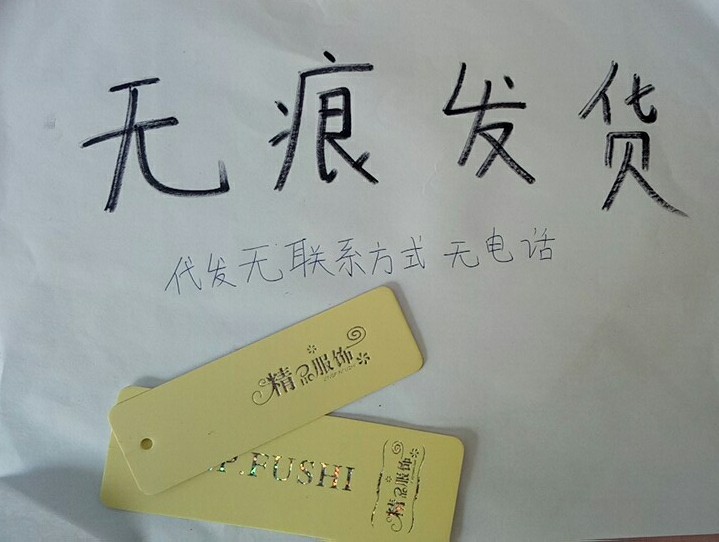 无痕发货
代发无联系方式 无电话
精品服饰
P.FUSHI
精品服饰